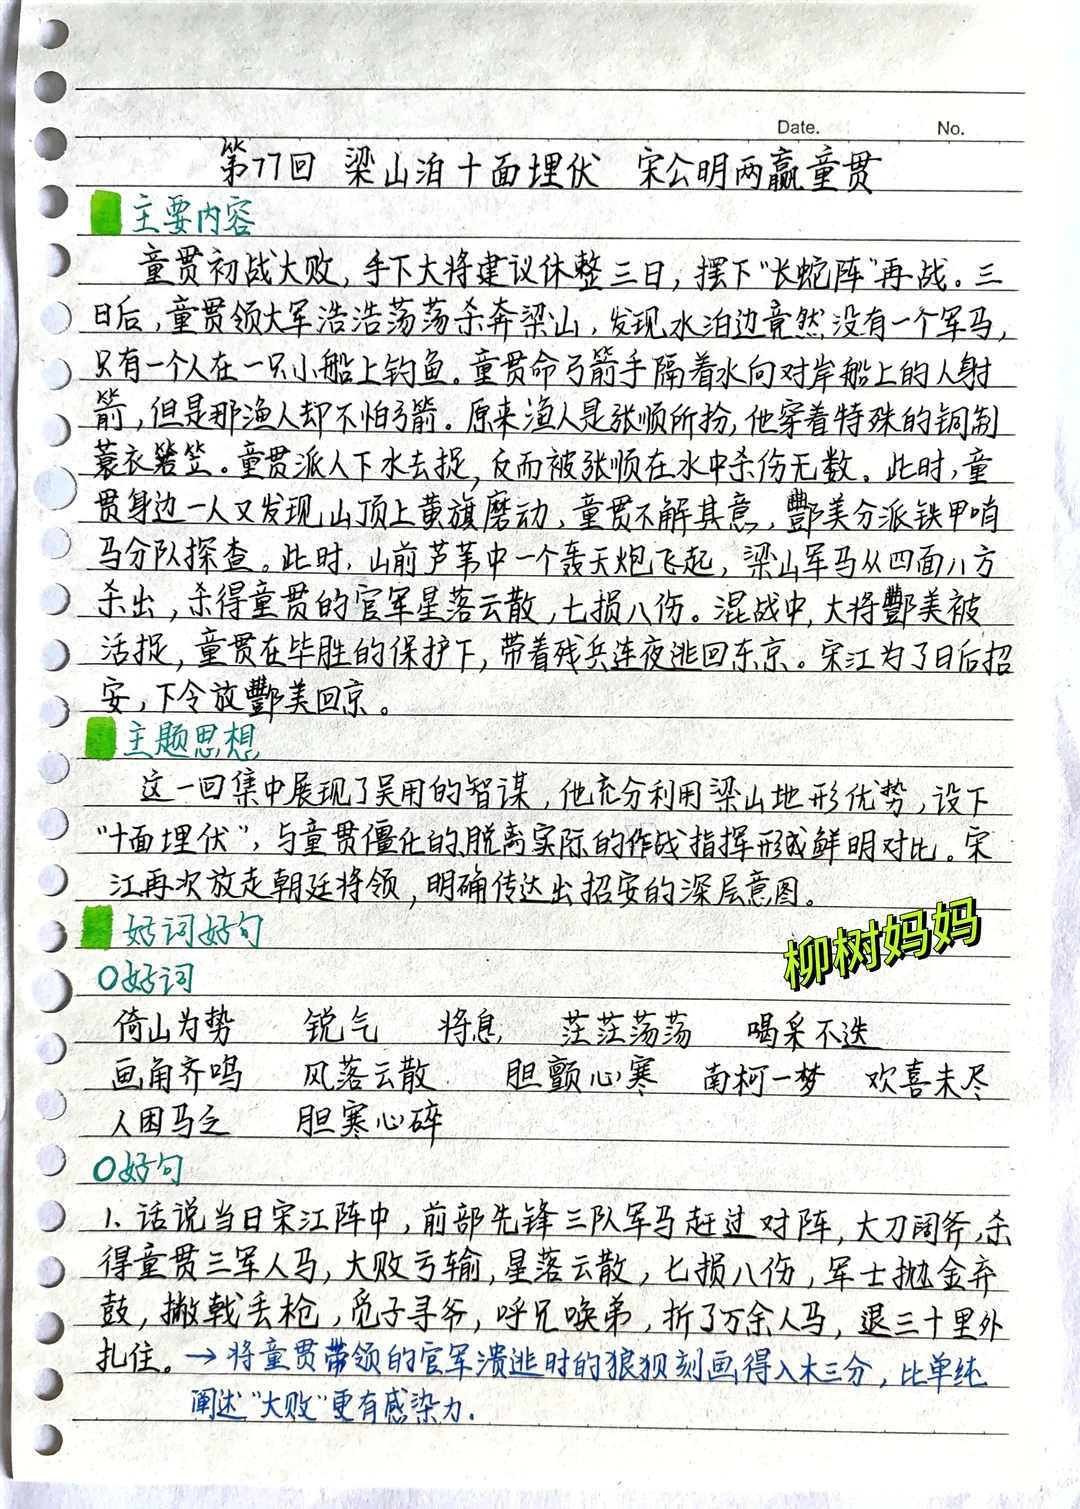 Date.
No.
第77回 梁山泊十面埋伏 宋公明两赢童贯
主要内容
童贯初战大败，手下大将建议休整三日，摆下“长蛇阵”再战。三
日后，童贯领大军浩浩荡荡杀奔梁山，发现水泊边竟然没有一个军马，
只有一个人在一只小船上钓鱼。童贯命弓箭手隔着水向对岸船上的人射
箭，但是那渔人却不怕弓箭。原来渔人是张顺所扮，他穿着特殊的铜制
蓑衣箬笠。童贯派人下水去捉，反而被张顺在水中杀伤无数。此时，童
贯身边一人又发现山顶上黄旗磨动，童贯不解其意，酆美分派铁甲哨
马分队探查。此时，山前芦苇中一个轰天炮飞起，梁山军马从四面八方
杀出，杀得童贯的官军星落云散，七损八伤。混战中，大将酆美被
活捉，童贯在毕胜的保护下，带着残兵连夜逃回东京。宋江为了日后招
安，下令放酆美回京。
主题思想
这一回集中展现了吴用的智谋，他充分利用梁山地形优势，设下
“十面埋伏”，与童贯僵化的脱离实际的作战指挥形成鲜明对比。宋
江再次放走朝廷将领，明确传达出招安的深层意图。
好词好句
柳树妈妈
O好词
倚山为势 锐气 将息 茫茫荡荡 喝采不迭
画角齐鸣 风落云散 胆颤心寒 南柯一梦 欢喜未尽
人困马乏 胆寒心碎
O好句
1. 话说当日宋江阵中，前部先锋三队军马赶过对阵，大刀阔斧，杀
得童贯三军人马，大败亏输，星落云散，七损八伤，军士抛金弃
鼓，撇戟丢枪，觅子寻爷，呼兄唤弟，折了万余人马，退三十里外
扎住。→将童贯带领的官军溃逃时的狼狈刻画得入木三分，比单纯
阐述“大败”更有感染力.